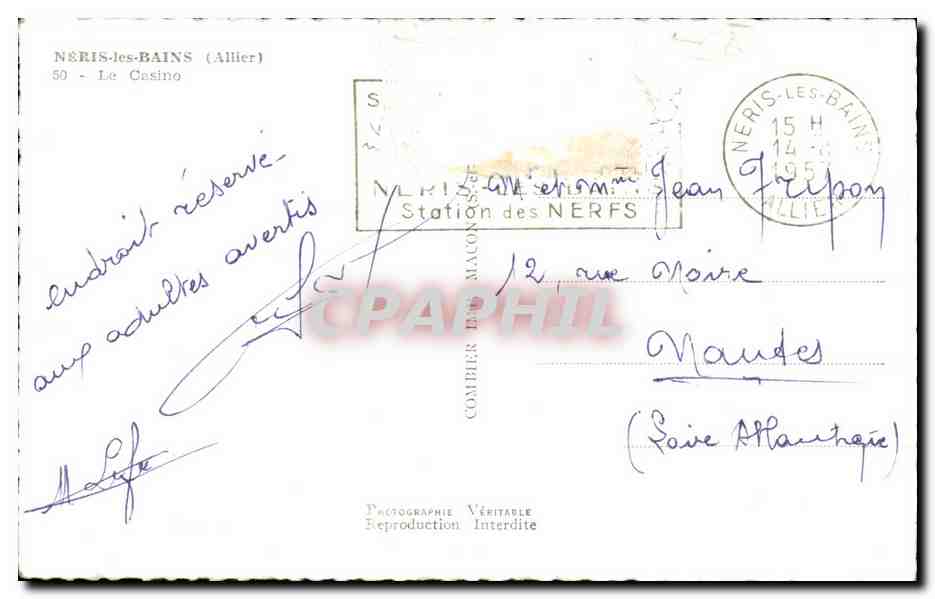 NÉRIS-les-BAINS (Allier)
50 - Le Casino
NERIS-LES-BAINS
15 H
14-8
1957
ALLIER
NERIS
Station des NERFS
endroit réservé
aux adultes avertis
et Mme Jean Fripon
12, rue Noire
Nantes
(Loire Atlantique)
COMBIER IMP. MACON
CPAPHIL
PHOTOGRAPHIE VÉRITABLE
Reproduction Interdite